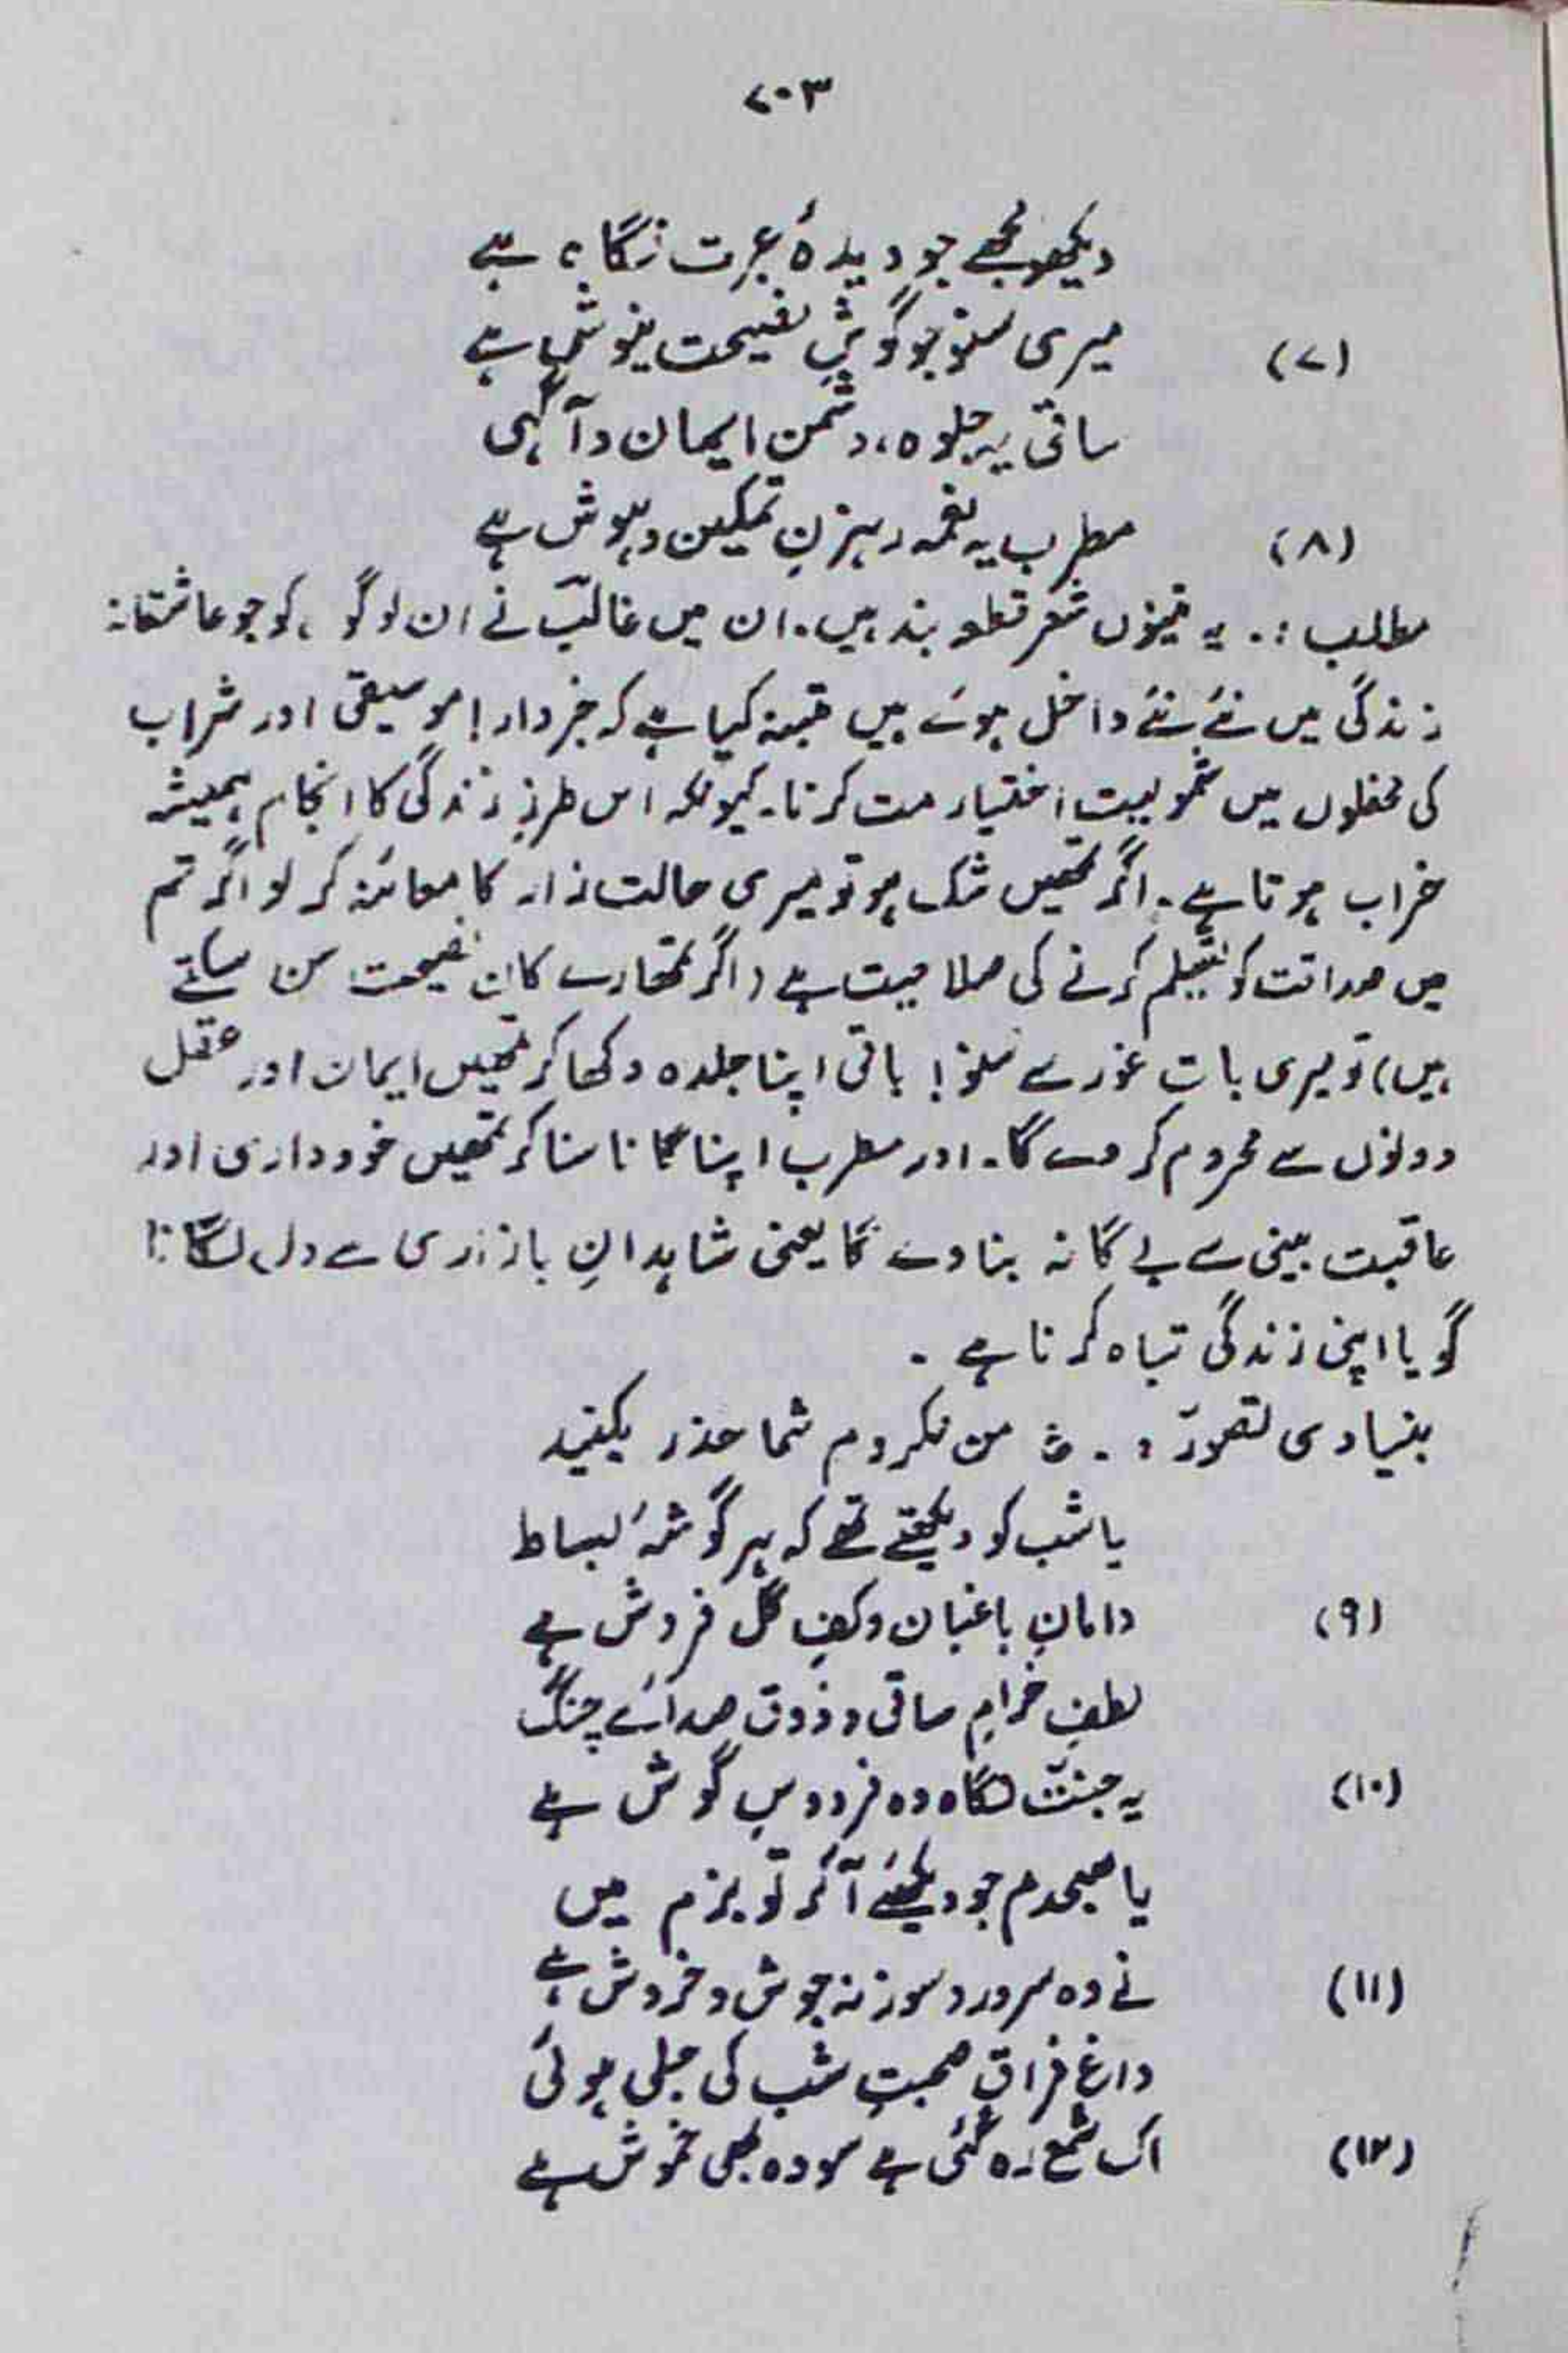 ۷۰۳
دیکھو مجھے جو دیدۂ عبرت نگاہ ہے
(۷) میری سنو جو گوشِ نصیحت نیوش ہے
ساقی بہ جلوہ، دشمنِ ایمان و آگہی
(۸) مطرب بہ نغمہ رہزنِ تمکین و ہوش ہے
مطلب :۔ یہ تینوں شعر قطعہ بند ہیں۔ ان میں غالبؔ نے ان لوگو ں کو جو عاشقانہ
زندگی میں نئے نئے داخل ہوئے ہیں متنبہ کیا ہے کہ خبردار! موسیقی اور شراب
کی محفلوں میں محویت اختیار مت کرنا۔ کیونکہ اس طرزِ زندگی کا انجام ہمیشہ
خراب ہوتا ہے۔ اگر تمھیں شک ہو تو میری حالت زار کا معائنہ کر لو اگر تم
میں صداقت کو تسلیم کرنے کی صلاحیت ہے (اگر تمھارے کان نصیحت سن سکتے
ہیں) تو میری بات غور سے سنو! باقی اپنا جلوہ دکھا کر تمھیں ایمان اور عقل
دونوں سے محروم کر دے گا۔ اور مطرب اپنا گانا سنا کر تمھیں خودداری اور
عاقبت بینی سے بے گانہ بنا دے گا یعنی شاہدانِ بازاری سے دل لگانا
گویا اپنی زندگی تباہ کرنا ہے ۔
بنیادی تصوّر :۔ ؎ من نکردم شما حذر بکنید
یا شب کو دیکھتے تھے کہ ہر گوشۂ بساط
(۹) دامانِ باغبان و کفِ گل فروش ہے
لطفِ خرامِ ساقی و ذوقِ صدائے چنگ
(۱۰) یہ جنّتِ نگاہ وہ فردوسِ گوش ہے
یا صبحدم جو دیکھئے آ کر تو بزم میں
(۱۱) نے وہ سرور و سوز نہ جوش و خروش ہے
داغِ فراقِ صحبتِ شب کی جلی ہوئی
(۱۲) اک شمع رہ گئی ہے سو وہ بھی خموش ہے